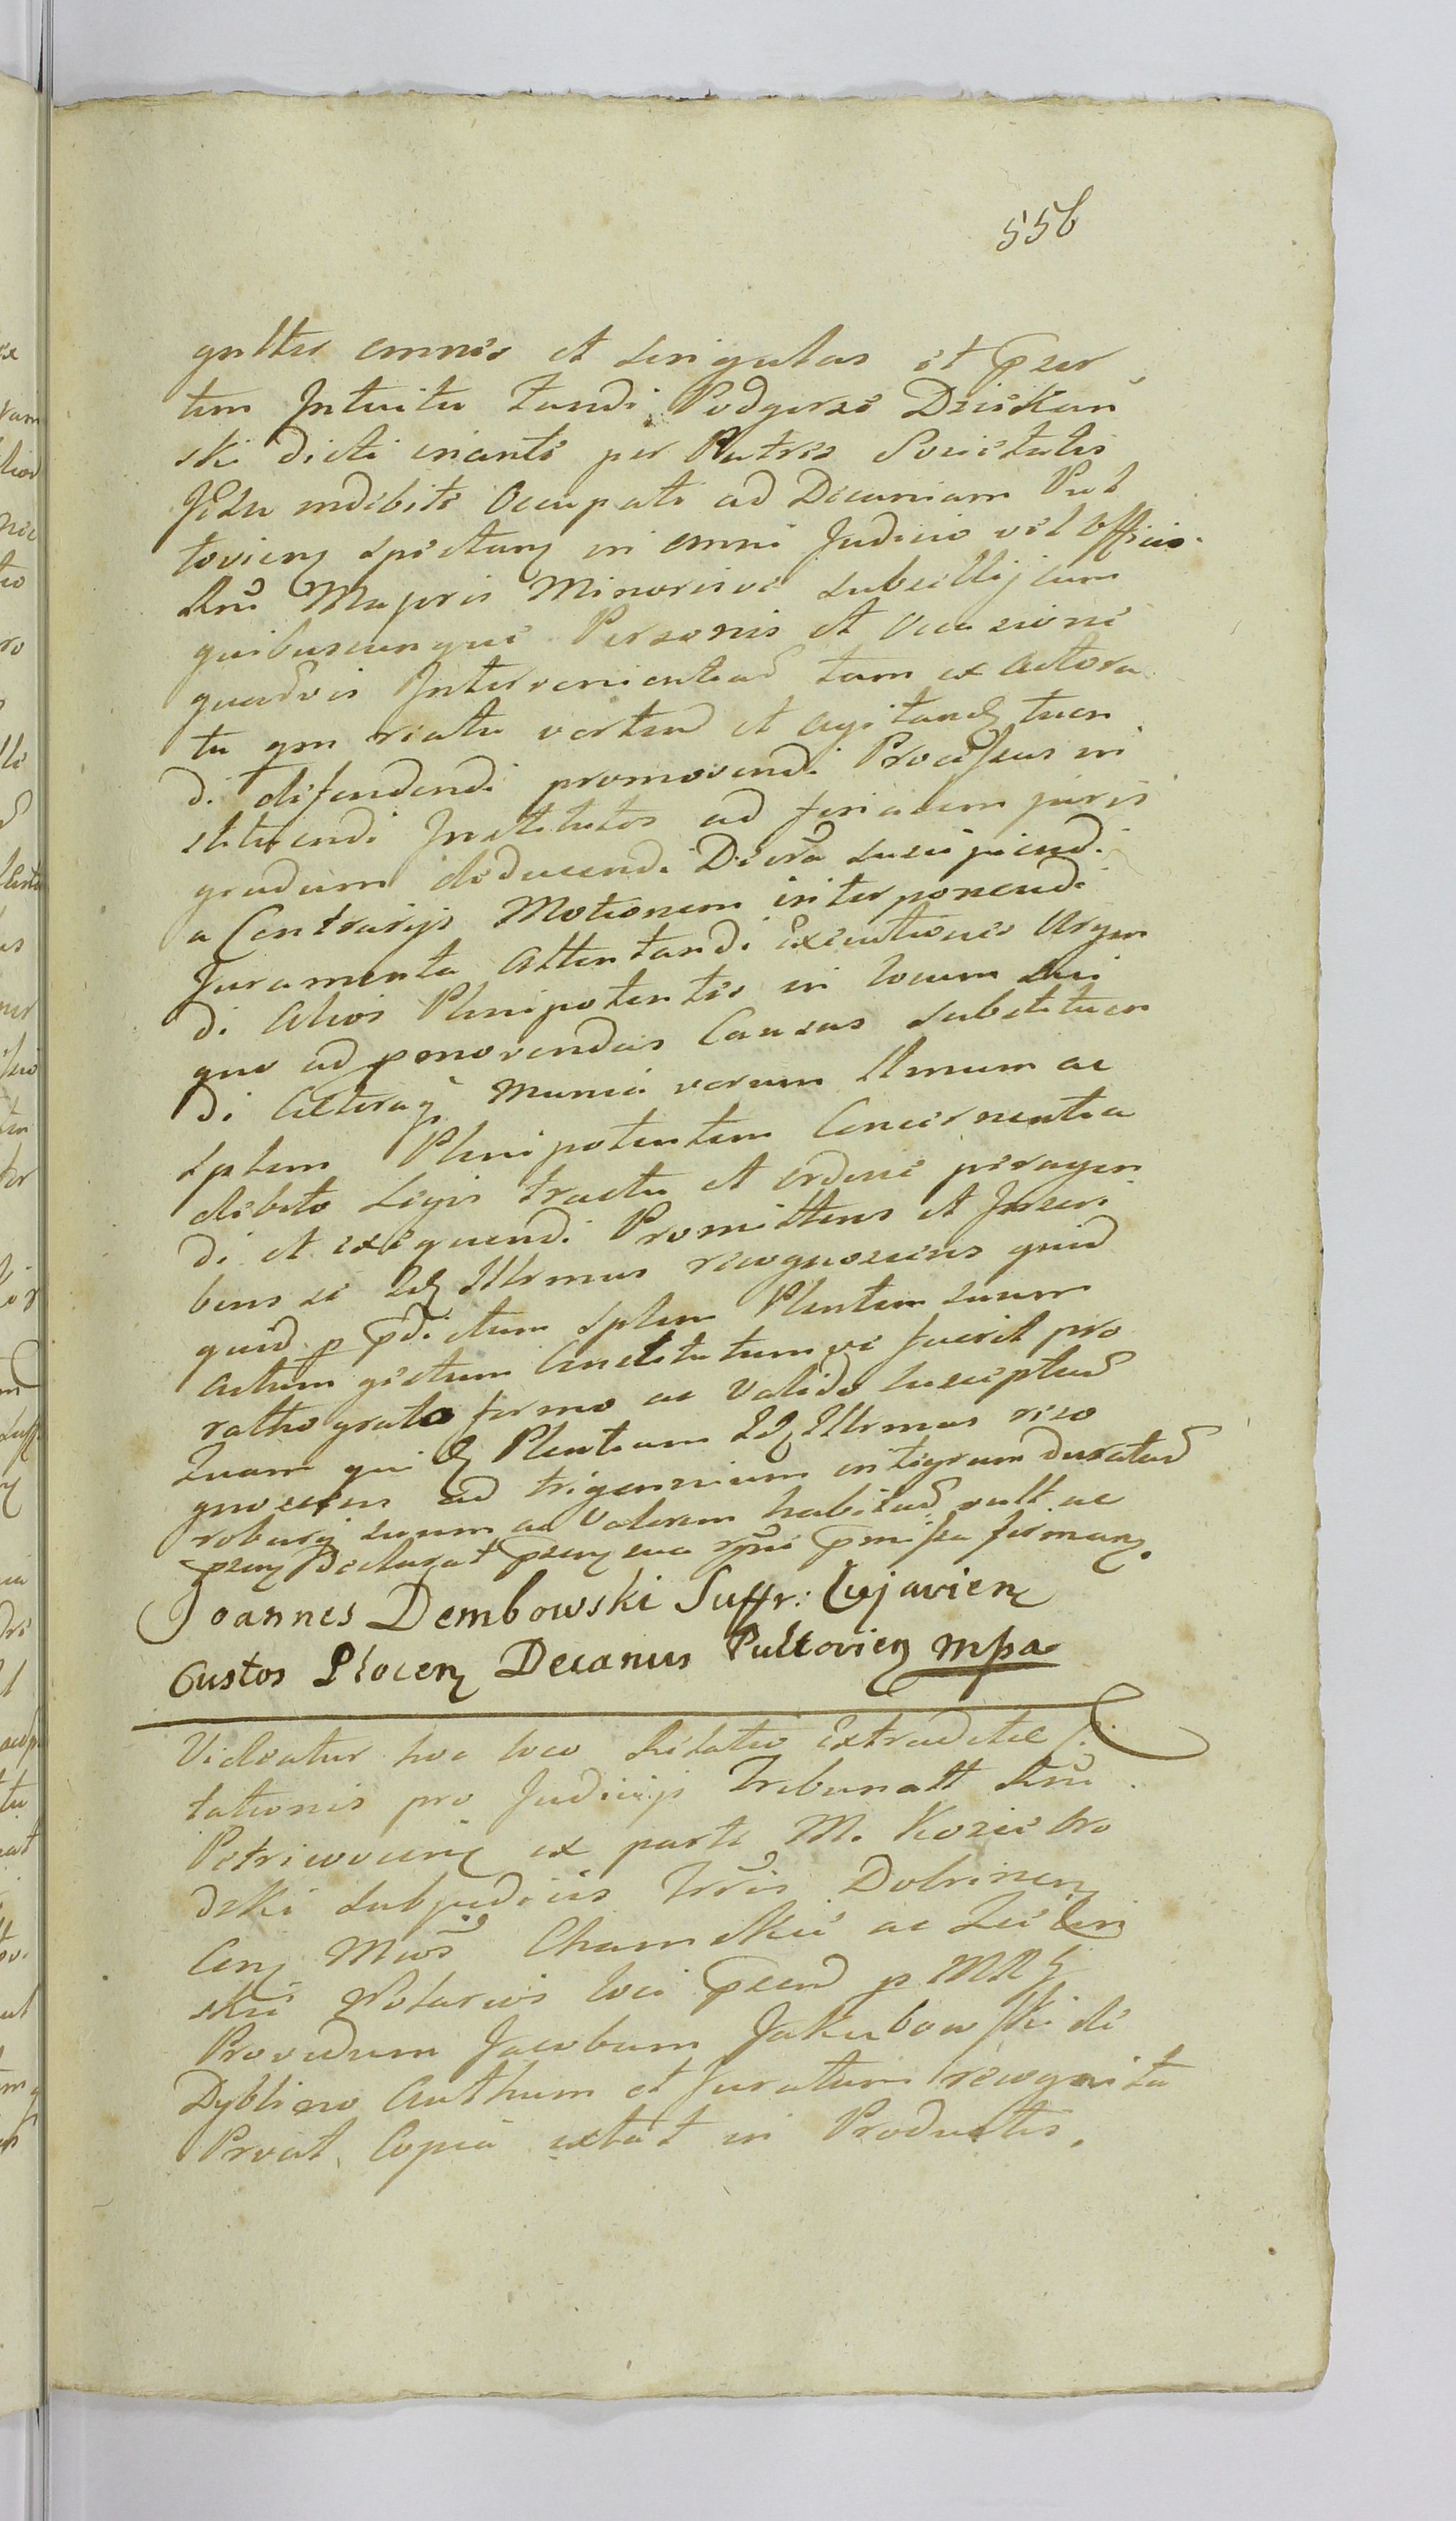 556
gnltter omnes et singulas et pser
tim Intuitu Fundi Podgorze Dziekan
ski dicti inante per Patres Societatis
Jesu indebite Occupati ad Decaniam Pul
tovien spectan in omni Judicio vel Officio
Rni Majoris Minorisve subsellij cum
quibuscunque Personis et Occasione
quavis Intervenientead tam ex actora
tu qm reatu vertend et agitand tuen
di defendendi promovendi Processus in
stituendi Institutos ad finalem juris
gradum deducendi Decrta suscipiendi
a Contrarijs Motionem interponendi
Juramenta Attentandi Executiones Urgen
di Alios Plenipotentes in locum sui
quo ad pmovendas Causas substituen
di Caeteraq Munia verum Ilmum ac
splem Plenipotentem Concernentia
debito Legis tractu et ordine peragen
di et exequendi Promittens et Inscri
bens se Idem Illrmus recognoscens quid
quid p pdictum splem Plentem suum
actum gestum Constitutumve fuerit pro
ratho grato firmo ac valido suscipiend
Quam quid Plentiam Idem Illrmus reco
gnoscens ad triennium integrum duratad
roburq suum ac valorem habitad vult ac
psen Declarat psen sua rpni pmissa firman.
Joannes Dembowski Suffr: Cujavien
Custos Plocen Decanus Pultovien mpa
Videatur hoc loco Relatio Extraditae Ci
tationis pro Judicijs Tribunall Rni
Petricovien ex parte M. Koziebro
dzki subjudicis Trris Dobrinen
Con Mcos Chamskie ac Zielin
skie Notarios loci psend p MRG
Providum Jacobum Jakubowski de
Dyblino Authum et Juratum recognita
Prout Copia extat in Productis.